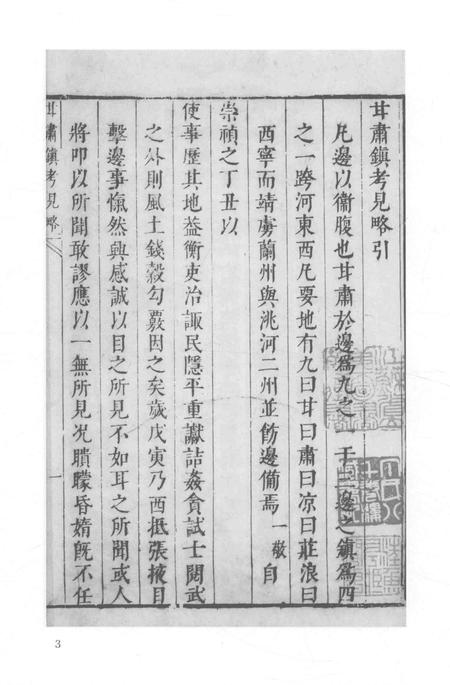 甘肅鎮考見略引
凡邊以衞腹也甘肅於邊爲九之一于三邊之鎮爲四
之一跨河東西凡要地有九曰甘曰肅曰凉曰莊浪曰
西寧而靖虜蘭州與洮河二州並飭邊備焉一敬自
崇禎之丁丑以
使事歷其地益衡吏治諏民隱平重讞詰姦貪試士閱武
之外則風土錢穀勾覈因之矣歲戊寅乃西抵張掖目
擊邊事愾然興感誠以目之所見不如耳之所聞或人
將叩以所聞敢謬應以一無所見况瞶矇昏惰旣不任
甘肅鎮考見略
一
3